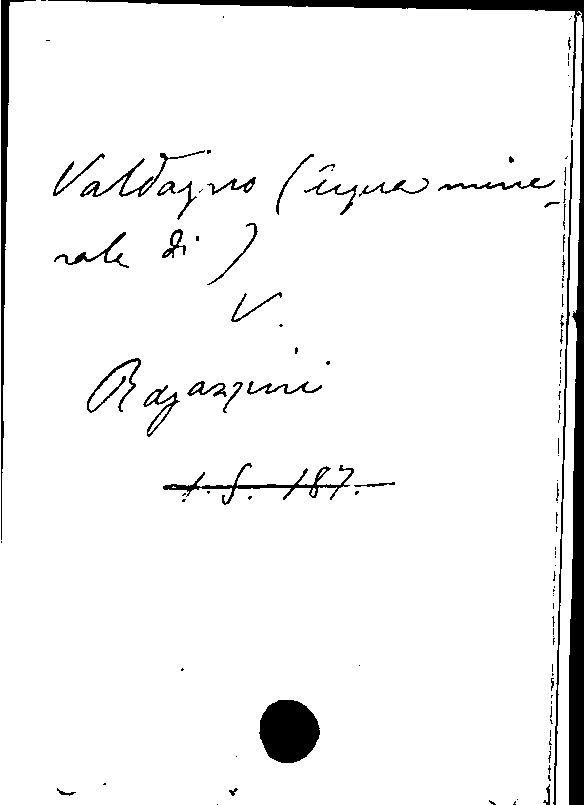 Valdagno (Acqua mine-
rale di)
V.
Ragazzini
1. S. 187.